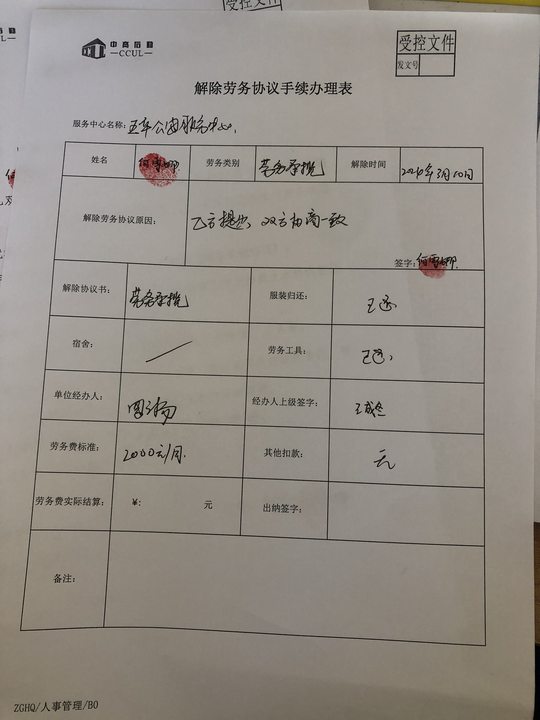 受控文件
中高后勤
—CCUL—
受控文件
发文号
解除劳务协议手续办理表
服务中心名称:
姓名 劳务类别 劳务承揽 解除时间 3月10日
解除劳务协议原因: 乙方提出、双方协商一致
签字:
解除协议书: 劳务承揽 服装归还: 已还
宿舍: ／ 劳务工具: 已还
单位经办人: 经办人上级签字:
劳务费标准: 2000元/月 其他扣款: 无
劳务费实际结算: ¥: 元 出纳签字:
备注:
ZGHQ/人事管理/B0